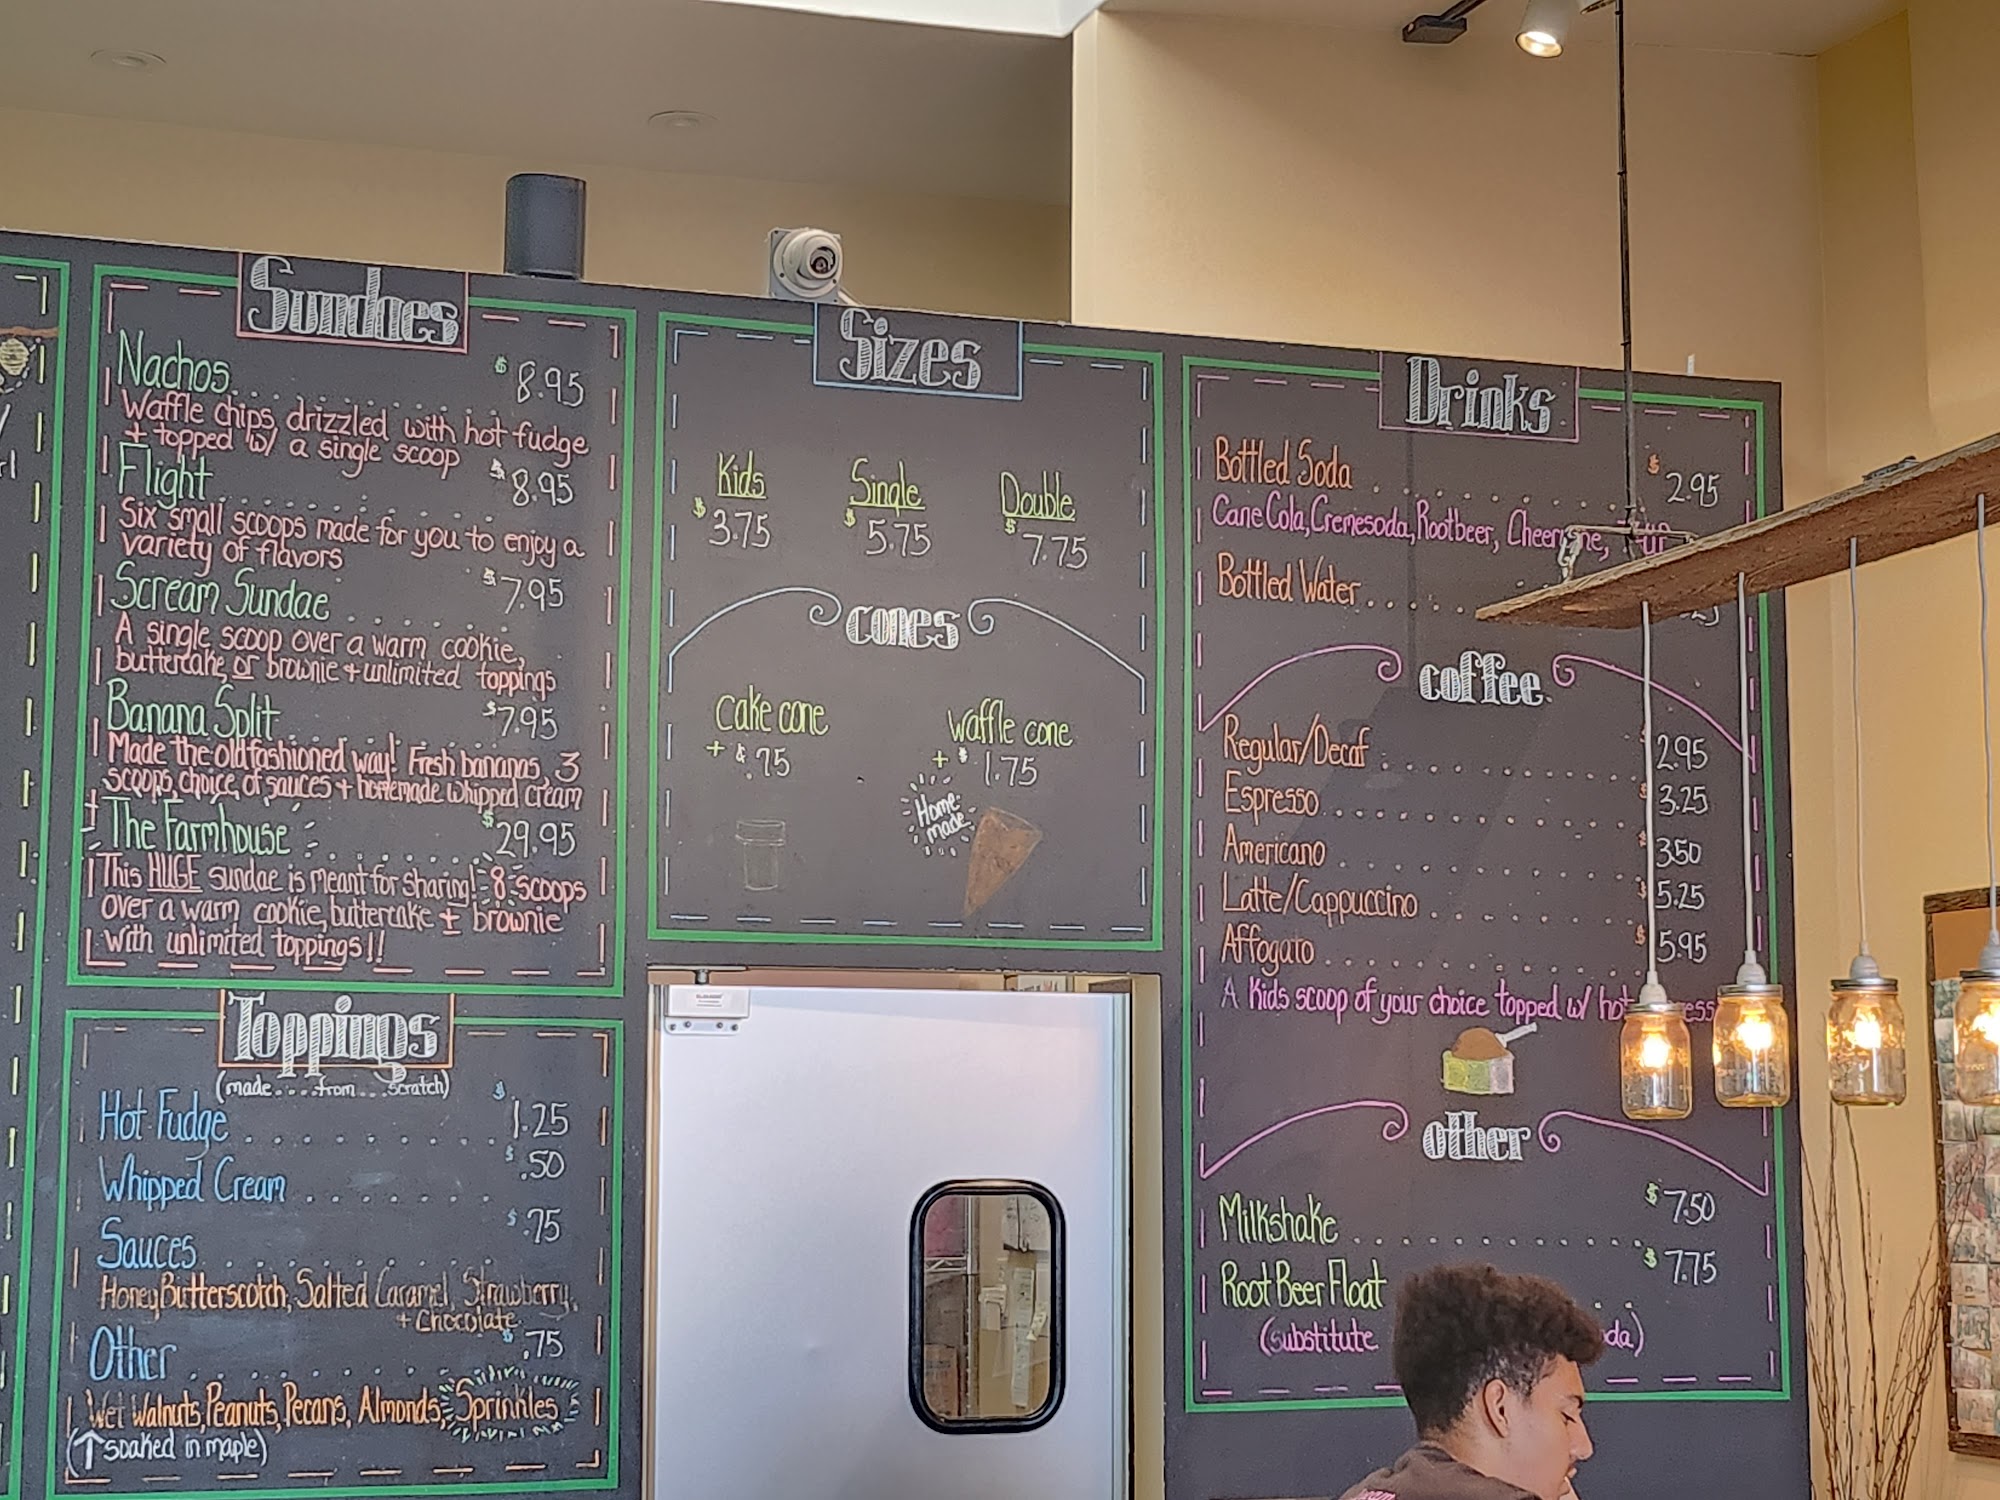 Sundaes
Nachos . . . . . . . . . . . $8.95
Waffle chips drizzled with hot fudge
+ topped w/ a single scoop
Flight . . . . . . . . . . . $8.95
Six small scoops made for you to enjoy a
variety of flavors
Scream Sundae . . . . . . $7.95
A single scoop over a warm cookie,
buttercake, or brownie + unlimited toppings
Banana Split . . . . . . . . $7.95
Made the old fashioned way! Fresh bananas, 3
scoops, choice of sauces + homemade whipped cream
The Farmhouse . . . . . . . $29.95
This HUGE sundae is meant for sharing! 8 scoops
over a warm cookie, buttercake + brownie
with unlimited toppings!!
Toppings
(made....from...scratch)
Hot Fudge . . . . . . . . . . . $1.25
Whipped Cream . . . . . . . . $.50
Sauces . . . . . . . . . . . $.75
Honey Butterscotch, Salted Caramel, Strawberry,
+ Chocolate
Other . . . . . . . . . . . $.75
Wet Walnuts, Peanuts, Pecans, Almonds, Sprinkles
(↑ soaked in maple)
Sizes
Kids Single Double
$3.75 $5.75 $7.75
cones
cake cone waffle cone
+ $.75 + $1.75
Home
made
Drinks
Bottled Soda . . . . . . . . . $2.95
Cane Cola, Cremesoda, Rootbeer,
Bottled Water . . . . .
coffee
Regular/Decaf . . . . . . . . . . $2.95
Espresso . . . . . . . . . . . $3.25
Americano . . . . . . . . . . $3.50
Latte/Cappuccino . . . . . . . $5.25
Affogato . . . . . . . . . . . $5.95
A Kids scoop of your choice topped w/
other
Milkshake . . . . . . . . . . $7.50
Root Beer Float $7.75
(substitute